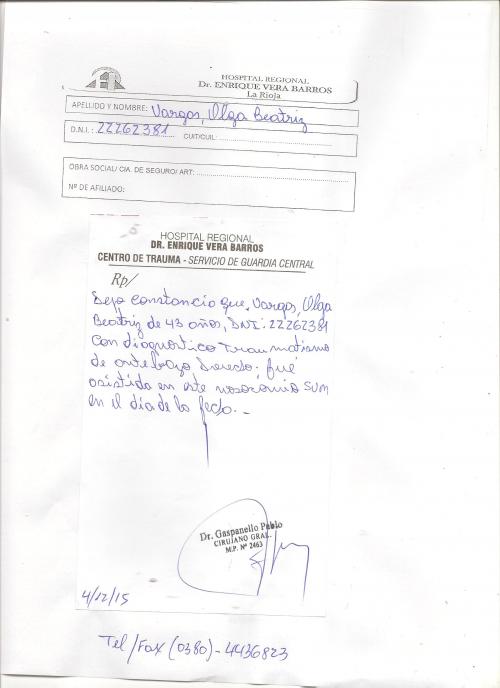 HOSPITAL REGIONAL
Dr. ENRIQUE VERA BARROS
La Rioja
APELLIDO Y NOMBRE: Vargas, Olga Beatriz
D.N.I.: 22262381 CUIT/CUIL:
OBRA SOCIAL/ CIA. DE SEGURO/ ART:
Nº DE AFILIADO:
HOSPITAL REGIONAL
DR. ENRIQUE VERA BARROS
CENTRO DE TRAUMA - SERVICIO DE GUARDIA CENTRAL
Rp/
Dejo constancia que, Vargas, Olga
Beatriz de 43 años, DNI: 22262381
con diagnostico Traumatismo
de antebrazo Derecho; fué
asistida en este nosocomio SUM
en el día de la fecha.-
Dr. Gaspanello Pablo
CIRUJANO GRAL.
M.P. Nº 2463
4/12/15
Tel/Fax (0380)-4436823